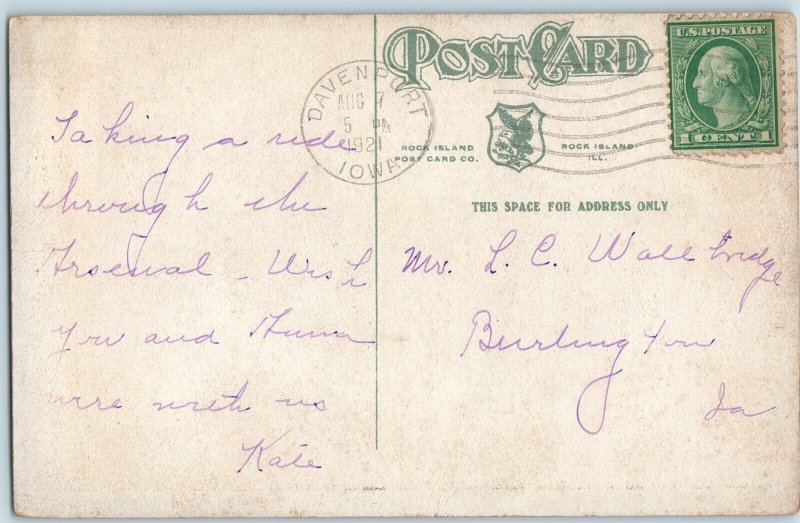 POST CARD
U.S. POSTAGE
1 CENT 1
DAVENPORT
AUG 7
5 PM
1921
IOWA
ROCK ISLAND
POST CARD CO.
ROCK ISLAND
ILL.
THIS SPACE FOR ADDRESS ONLY
Taking a ride
through the
Arsenal - Wish
you and Anna
were with us
Kate
Mr. L. C. Wallbridge
Burlington
Ia